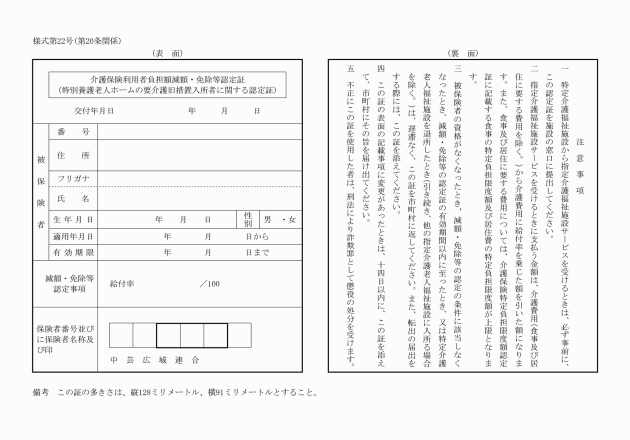 様式第22号(第20条関係)
(表　面)
介護保険利用者負担額減額・免除等認定証
(特別養護老人ホームの要介護旧措置入所者に関する認定証)
交付年月日　年　月　日
被保険者
番　号
住　所
フリガナ
氏　名
生年月日　年　月　日　性別　男・女
適用年月日　年　月　日から
有効期限　年　月　日まで
減額・免除等
認定事項
給付率　／100
保険者番号並び
に保険者名称及
び印
中芸広域連合
(裏　面)
注意事項
一　特定介護福祉施設から指定介護福祉施設サービスを受けるときは、必ず事前に、
この認定証を施設の窓口に提出してください。
二　指定介護福祉施設サービスを受けるときに支払う金額は、介護費用(食事及び居
住に要する費用を除く。)から介護費用に給付率を乗じた額を引いた額になりま
す。また、食事及び居住に要する費用については、介護保険特定負担限度額認定
証に記載する食事の特定負担限度額及び居住費の特定負担限度額が上限となりま
す。
三　被保険者の資格がなくなったとき、減額・免除等の認定の条件に該当しなく
なったとき、減額・免除等の認定証の有効期間以内に至ったとき、又は特定介護
老人福祉施設を退所したとき(引き続き、他の指定介護老人福祉施設に入所する場合
を除く。)は、遅滞なく、この証を市町村に返してください。また、転出の届出を
する際には、この証を添えてください。
四　この証の表面の記載事項に変更があったときは、十四日以内に、この証を添え
て、市町村にその旨を届け出てください。
五　不正にこの証を使用した者は、刑法により詐欺罪として懲役の処分を受けます。
備考　この証の多きさは、縦128ミリメートル、横91ミリメートルとすること。